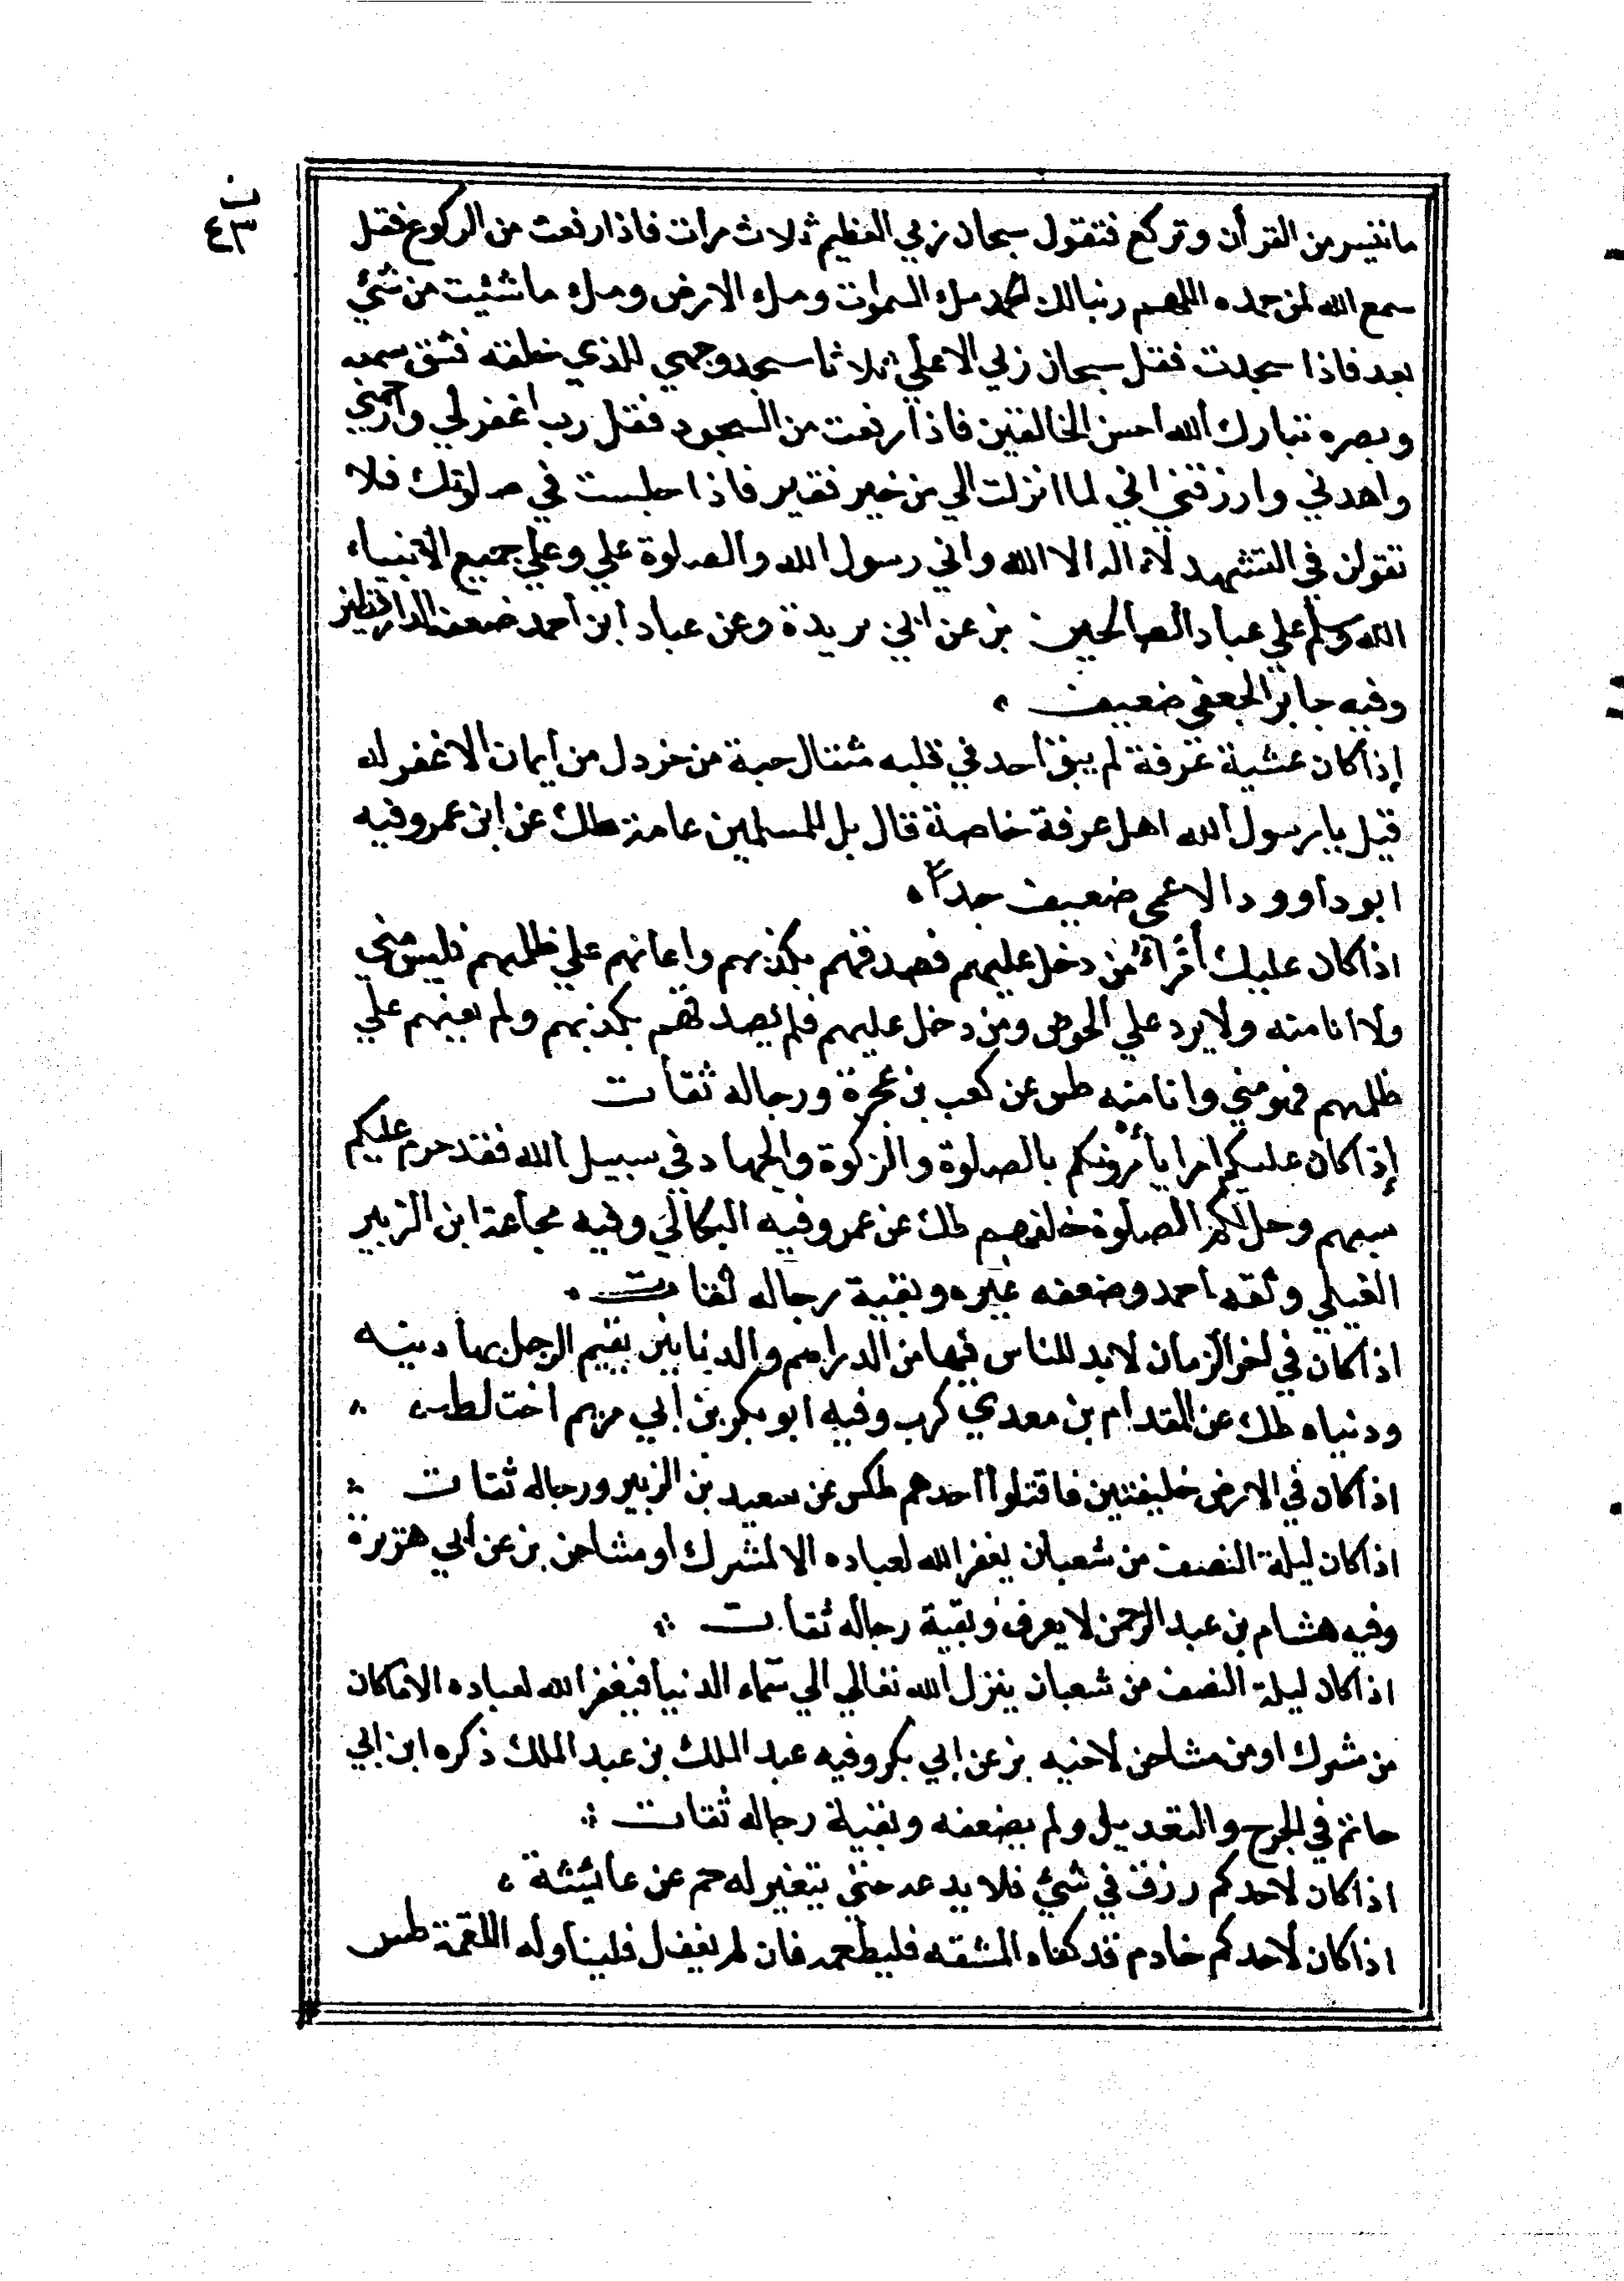 ب
٤٣
ما تيسر من القرأن وتركع فتقول سبحان ربي العظيم ثلاث مرات فاذا رفعت من الركوع فقل
سمع الله لمن حمده اللهم ربنا لك الحمد مل السموات ومل الارض ومل ما شئت من شئ
بعد فاذا سجدت فقل سبحان ربي الاعلي ثلاثا سجد وجهي للذي خلقه فشق سمعه
وبصره تبارك الله احسن الخالقين فاذا رفعت من السجود فقل رب اغفر لي وارحمني
واهدني وارزقني اني لما انزلت الي من خير فقير فاذا جلست في صلوتك فلا
تقولن في التشهد لا اله الا الله واني رسول الله والصلوة علي وعلي جميع الأنبياء
الله وسلم علي عباد الصالحين بز عن ابي بريدة وعن عباد ابن أحمد ضعفه الدارقطني
وفيه جابر الجعفي ضعيف
إذا كان عشية عرفة لم يبق أحد في قلبه مثقال حبة من خردل من أيمان الا غفر له
قيل يا رسول الله اهل عرفة خاصة قال بل للمسلمين عامة طك عن ابن عمر وفيه
ابو داوود الاعمى ضعيف جداً
اذا كان عليك أمراء من دخل عليهم فصدقهم بكذبهم واعانهم علي ظلمهم فليس مني
ولا أنا منه ولا يرد علي الحوض ومن دخل عليهم فلم يصدقهم بكذبهم ولم يعينهم علي
ظلمهم فهو مني وانا منه طس عن كعب بن عجرة ورجاله ثقات
إذا كان عليكم امرا يأمرونكم بالصلوة والزكوة والجهاد في سبيل الله فقد حرم عليكم
سبهم وحل لكم الصلوة خلفهم طك عن عمر وفيه البكالي وفيه مجاعة ابن الزبير
العيلي وثقه أحمد وضعفه غيره وبقية رجاله ثقات
اذا كان في اخر الزمان لابد للناس فيها من الدراهم والدنانير يقيم الرجل بها دينه
ودنياه طك عن المقدام بن معدي كرب وفيه ابو بكر بن أبي مريم اختلط
اذا كان في الارض خليفتين فاقتلوا أحدهم طكس عن سعيد بن الزبير ورجاله ثقات
اذا كان ليلة النصف من شعبان يغفر الله لعباده الا لمشرك أو مشاحن بز عن أبي هريرة
وفيه هشام بن عبد الرحمن لا يعرف وبقية رجاله ثقات
اذا كان ليلة النصف من شعبان ينزل الله تعالي الي سماء الدنيا فيغفر الله لعباده الا ما كان
من مشرك او من مشاحن لاخيه بز عن ابي بكر وفيه عبد الملك بن عبد الملك ذكره ابن ابي
حاتم في الجرح والتعديل ولم يضعفه وبقية رجاله ثقات
اذا كان لأحدكم رزق في شئ فلا يدعه حتى يتغير له حم عن عائشة
اذا كان لأحدكم خادم قد كفاه المشقه فليطعمه فان لم يفعل فليناوله اللقمة طس